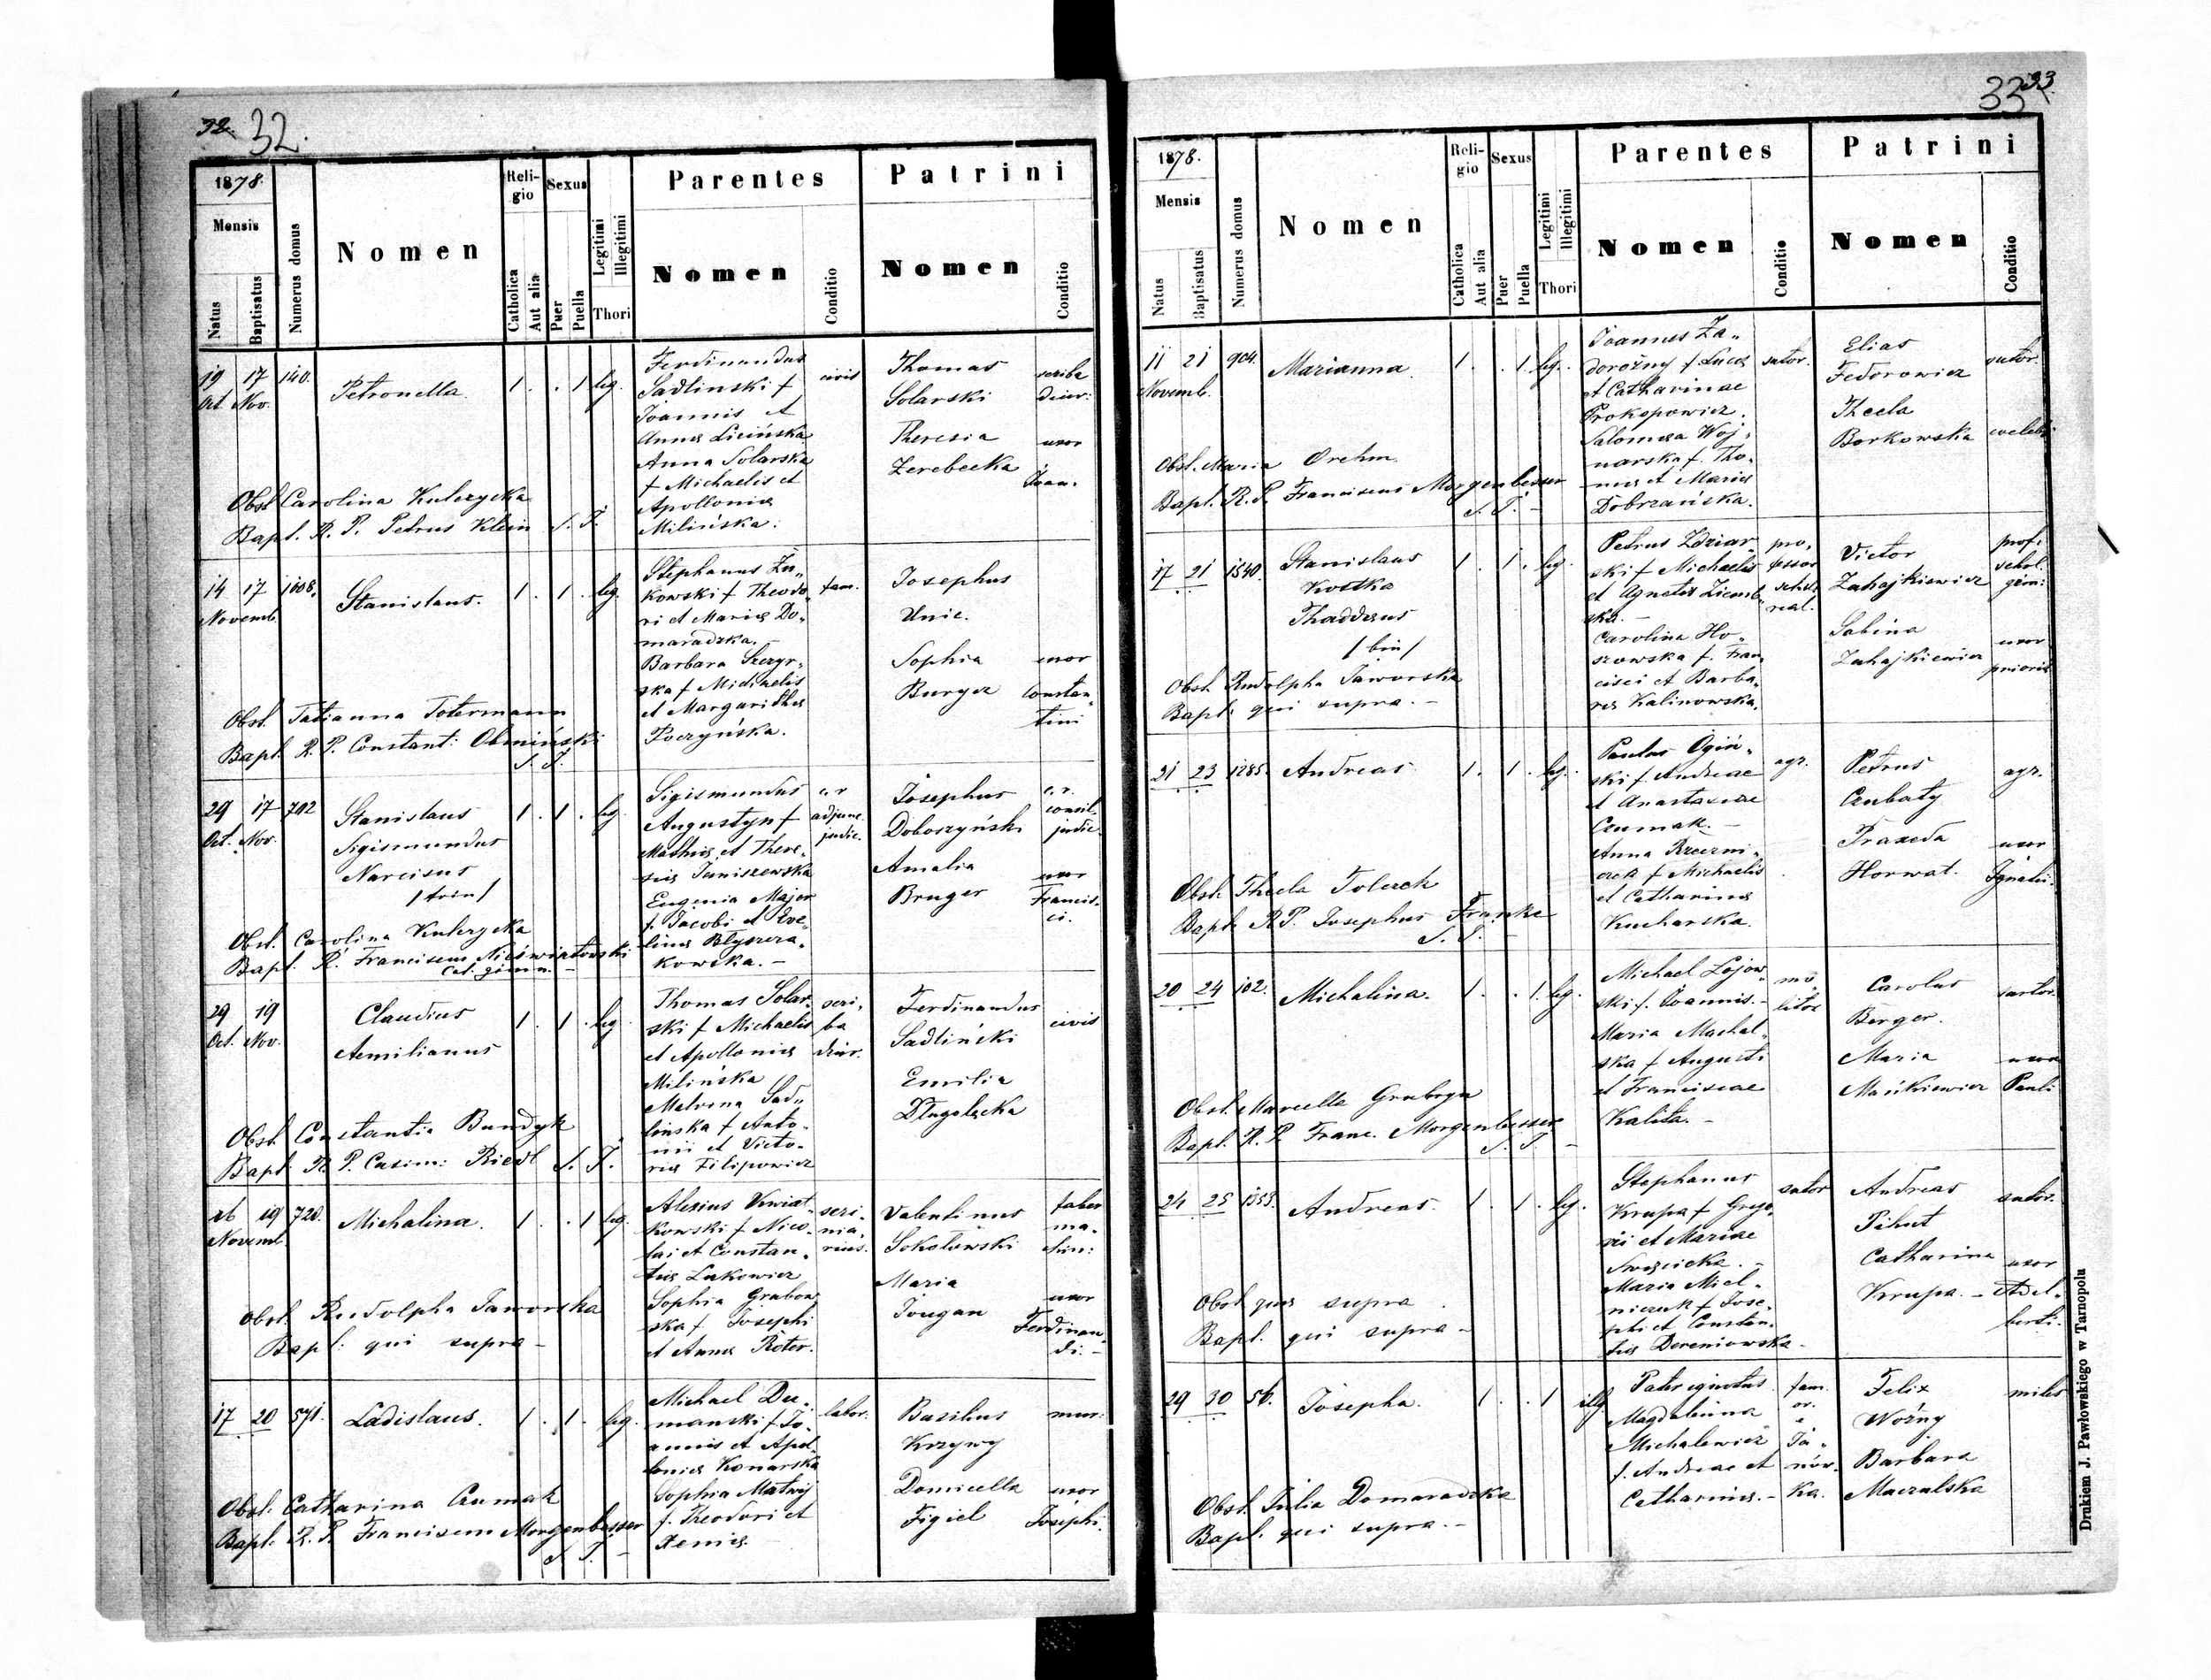 32. 32.
1878.
Mensis
Natus
Baptisatus
Numerus domus
Nomen
Religio
Catholica
Aut alia
Sexus
Puer
Puella
Legitimi
Illegitimi
Thori
Parentes
Nomen
Conditio
Patrini
Nomen
Conditio
19 17 140.
Oct. Nov.
Petronella
1 . . 1 leg.
Ferdinandus
Sadlinski f
Joannis et
Annæ Licińska
Anna Solarska
f Michaelis et
Apolloniæ
Milińska.
civis
Thomas
Solarski
Theresia
Zerebecka
scriba
diur:
uxor
Joan.
Obst. Carolina Kulczycka
Bapt. R. P. Petrus Klein S. J.
14 17 1008.
Novemb.
Stanislaus.
1 . 1 . leg.
Stephanus Żu„
kowski f Theodo„
ri et Mariæ Do„
maradzka. –
Barbara Szczyr„
ska f Michaelis
et Margarithæ
Poczyńska.
fam.
Josephus
Unic.
Sophia
Burger
uxor
Constan„
tini
Obst. Tatianna Totermann
Bapt. R. P. Constant: Obmiński
S. J.
29 17 702
Oct. Nov.
Stanislaus
Sigismundus
Narcisus
/trin/
1 . 1 . leg.
Sigismundus
Augustyn f
Mathiæ et There„
siæ Janiszewska
Eugenia Major
f. Jacobi et Eve„
linæ Błyszcza„
kowska. –
c. r
adjunc.
judic.
Josephus
Doboszyński
Amalia
Bruger
c. r.
consil.
judic.
uxor
Francis„
ci.
Obst. Carolina Kulczycka
Bapt. R. Franciscus Nieświatowski
Cat. gimn. –
29 19
Oct. Nov.
Claudius
Aemilianus
1 . 1 . leg.
Thomas Solar„
ski f Michaelis
et Apolloniæ
Milińska
Malvina Sad„
linska f Anto„
nii et Victo„
riæ Filipowicz
scri„
ba
diur.
Ferdinandus
Sadliński
Emilia
Długołęcka
civis
Obst. Constantia Bundyk
Bapt. R. P. Casim: Riedl S. J.
16 19 720.
Novemb.
Michalina.
1 . . 1 leg.
Alexius Kwiat„
kowski f Nico„
lai et Constan„
tiæ Lukowicz
Sophia Grabow„
ska f Josephi
et Annæ Roter.
scri„
nia„
rius.
Valentinus
Sokołowski
Maria
Jougan
faber
ma„
chin:
uxor
Ferdinan„
di. –
Obst. Rudolpha Jaworska
Bapt. qui supra –
17 20 571.
Ladislaus.
1 . 1 . leg.
Michael Du„
manski f Jo„
annis et Apol„
loniæ Konarska
Sophia Matwij
f. Theodori et
Xeniæ. –
labor.
Basilius
Krzywy
Domicella
Figiel
mur:
uxor
Josephi.
Obst. Catharina Czumak
Bapt. R. P. Franciscus Morgenbesser
S. J. –
33 33.
1878.
Mensis
Natus
Baptisatus
Numerus domus
Nomen
Religio
Catholica
Aut alia
Sexus
Puer
Puella
Legitimi
Illegitimi
Thori
Parentes
Nomen
Conditio
Patrini
Nomen
Conditio
11 21 904.
Novemb.
Marianna
1 . . 1 leg.
Joannes Za„
dorożny f Lucæ
et Catharinae
Prokopowicz.
Salomea Woj„
narska f. Tho„
mæ et Mariæ
Dobrzańska.
sutor.
Elias
Fedorowicz
Thecla
Borkowska
sutor.
coelebs
Obst. Maria Orehm.
Bapt. R. P. Franciscus Morgenbesser
S. J. –
17 21 1540.
Stanislaus
Kostka
Thaddæus
/bin/
1 . 1 . leg.
Petrus Zdziar„
ski f Michaelis
et Agnetis Ziemb„
ska. –
Carolina Ho„
szowska f. Fran„
cisci et Barba„
ræ Kalinowska.
pro„
fessor
schol.
real.
Victor
Zahajkiewicz
Sabina
Zahajkiewicz
prof.
schol.
gim:
uxor
prioris
Obst. Rudolpha Jaworska
Bapt. qui supra. –
21 23 1285.
Andreas
1 . 1 . leg.
Paulus Ogiń„
ski f Andreae
et Anastasiae
Czumak. –
Anna Rzeczni„
czek f Michaelis
et Catharinæ
Kucharska.
agr.
Petrus
Czubaty
Praxeda
Horwat.
agr.
uxor
Ignatii.
Obst. Thecla Tolczek
Bapt. R. P. Josephus Franke
S. J. –
20 24 102.
Michalina.
1 . . 1. leg.
Michael Łojow„
ski f. Joannis. –
Maria Machal„
ska f Augusti
et Franciscae
Kalita. –
mo„
litor
Carolus
Berger.
Maria
Maćkiewicz
sartor.
uxor
Pauli
Obst. Marcella Grubryn
Bapt. R. P. Franc. Morgenbesser
S. J. –
24 25 1353.
Andreas.
1 . 1 . leg.
Stephanus
Krupa f Grego„
rii et Mariae
Swozicka. –
Maria Miel„
niczuk f Jose„
phi et Constan„
tiæ Dereniowska –
sutor
Andreas
Pihut
Catharina
Krupa. –
sutor.
uxor
Adal„
berti.
Obst. quæ supra.
Bapt. qui supra –
29 30 56.
Josepha.
1 . . 1 illg.
Pater ignotus
Magdalenna
Michalewicz
f. Andreae et
Catharinæ. –
fam.
or.
e
Ja„
nów„
ka.
Felix
Woźny
Barbara
Maczulska
miles
Obst. Julia Domaradzka
Bapt. qui supra. –
Drukiem J. Pawłowskiego w Tarnopolu